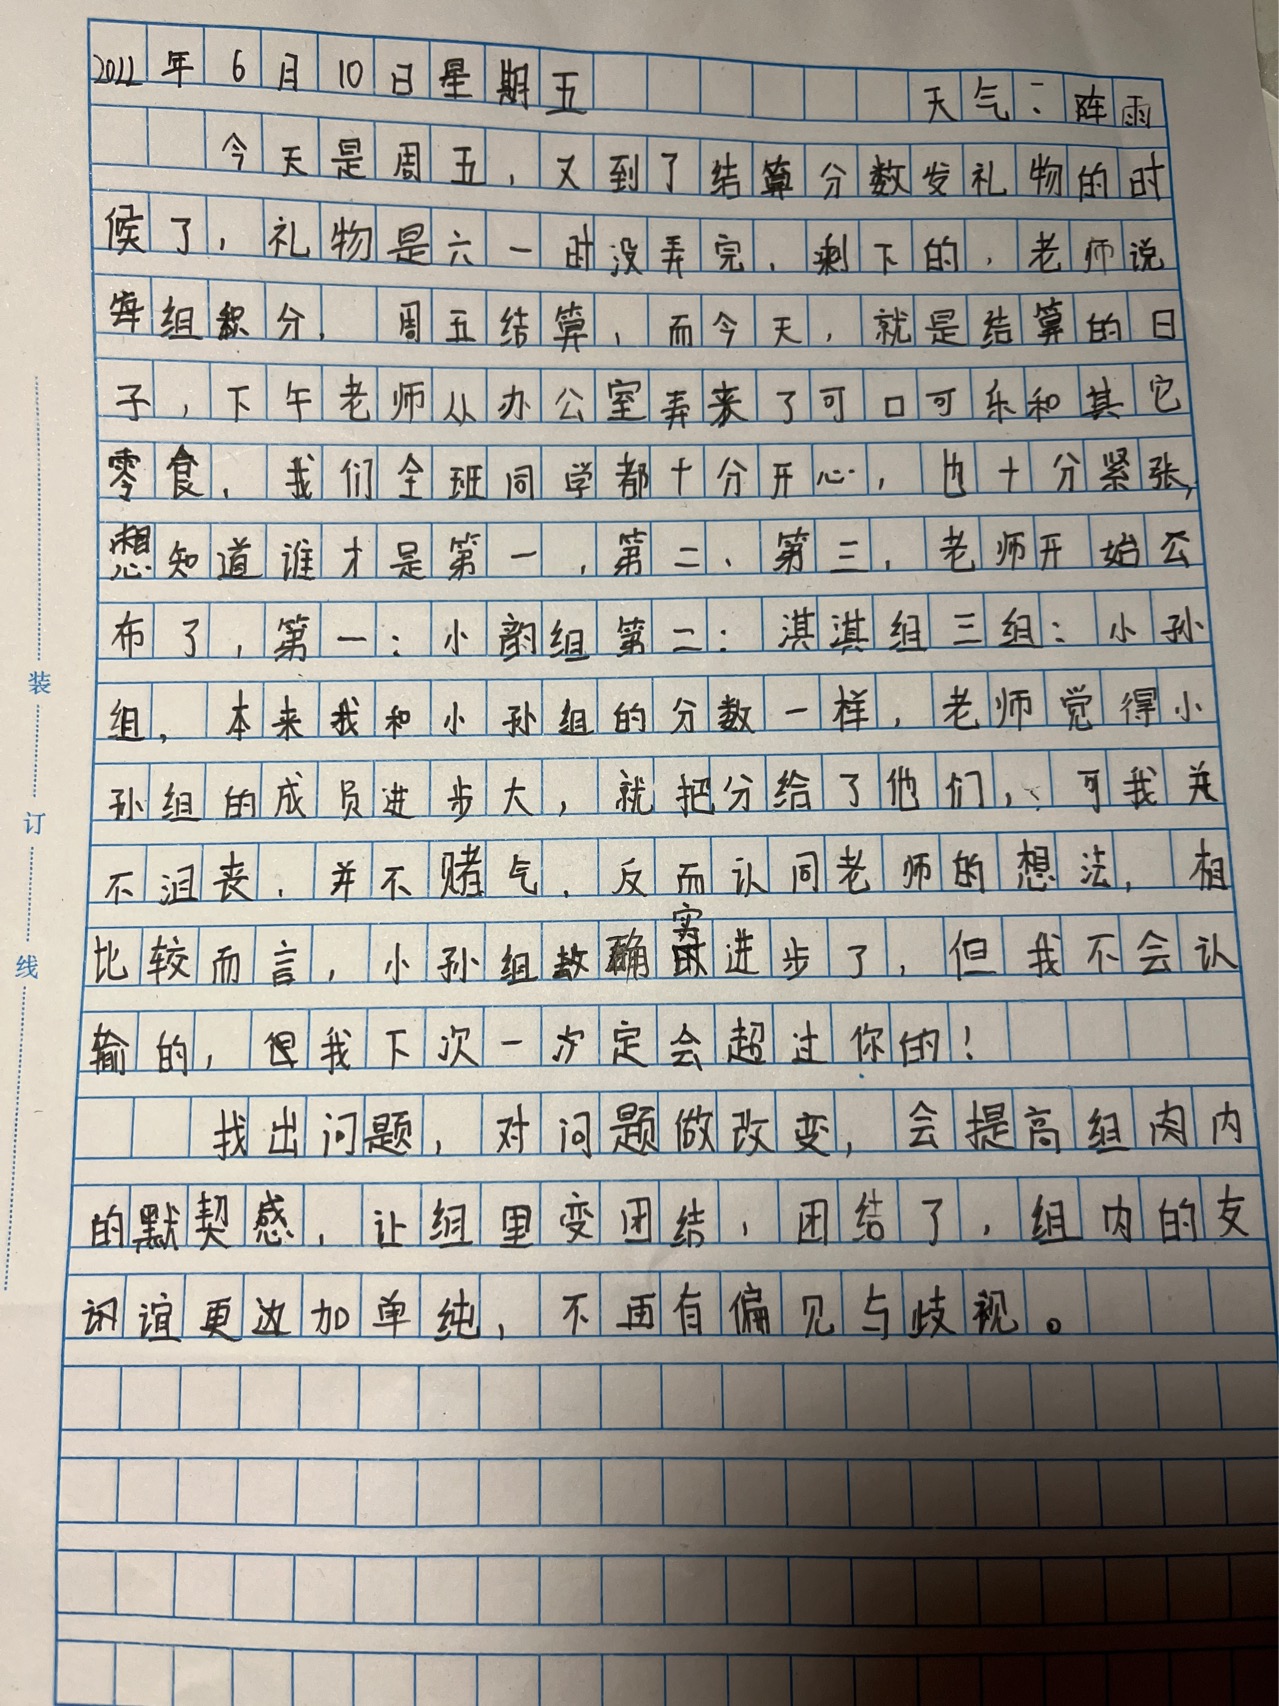 2022年6月10日星期五 天气：阵雨
今天是周五，又到了结算分数发礼物的时
候了，礼物是六一时没弄完，剩下的，老师说
每组积分，周五结算，而今天，就是结算的日
子，下午老师从办公室弄来了可口可乐和其它
零食，我们全班同学都十分开心，也十分紧张，
想知道谁才是第一，第二、第三，老师开始公
布了，第一：小韵组第二：淇淇组三组：小孙
组，本来我和小孙组的分数一样，老师觉得小
孙组的成员进步大，就把分给了他们，可我并
不沮丧，并不赌气，反而认同老师的想法，相
比较而言，小孙组确实进步了，但我不会认
输的，但我下次一定会超过你的！
找出问题，对问题做改变，会提高组内
的默契感，让组里变团结，团结了，组内的友
谊更加单纯，不再有偏见与歧视。
装订线